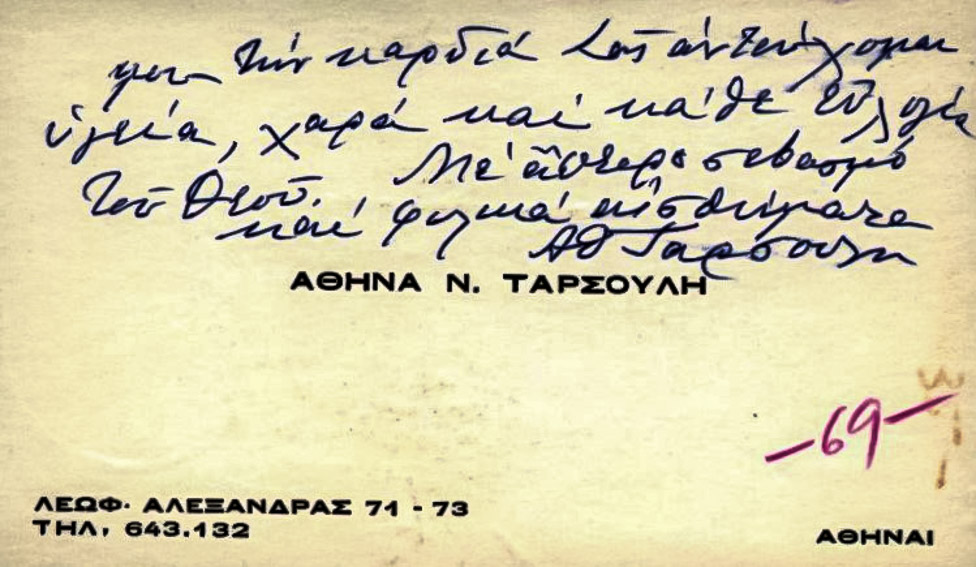 μου τὴν καρδιά Σας ἀντεύχομαι
ὑγεία, χαρά καί κάθε εὐλογία
τοῦ Θεοῦ. Μέ ἄπειρο σεβασμό
καί φιλικά αἰσθήματα
ΑΘ Ταρσούλη
ΑΘΗΝΑ Ν. ΤΑΡΣΟΥΛΗ
—69—
ΛΕΩΦ. ΑΛΕΞΑΝΔΡΑΣ 71 - 73
ΤΗΛ. 643.132
ΑΘΗΝΑΙ